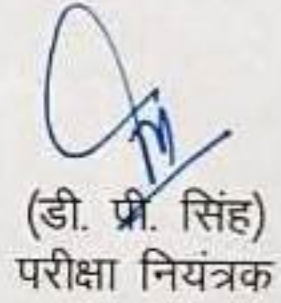 (डी. पी. सिंह)
परीक्षा नियंत्रक